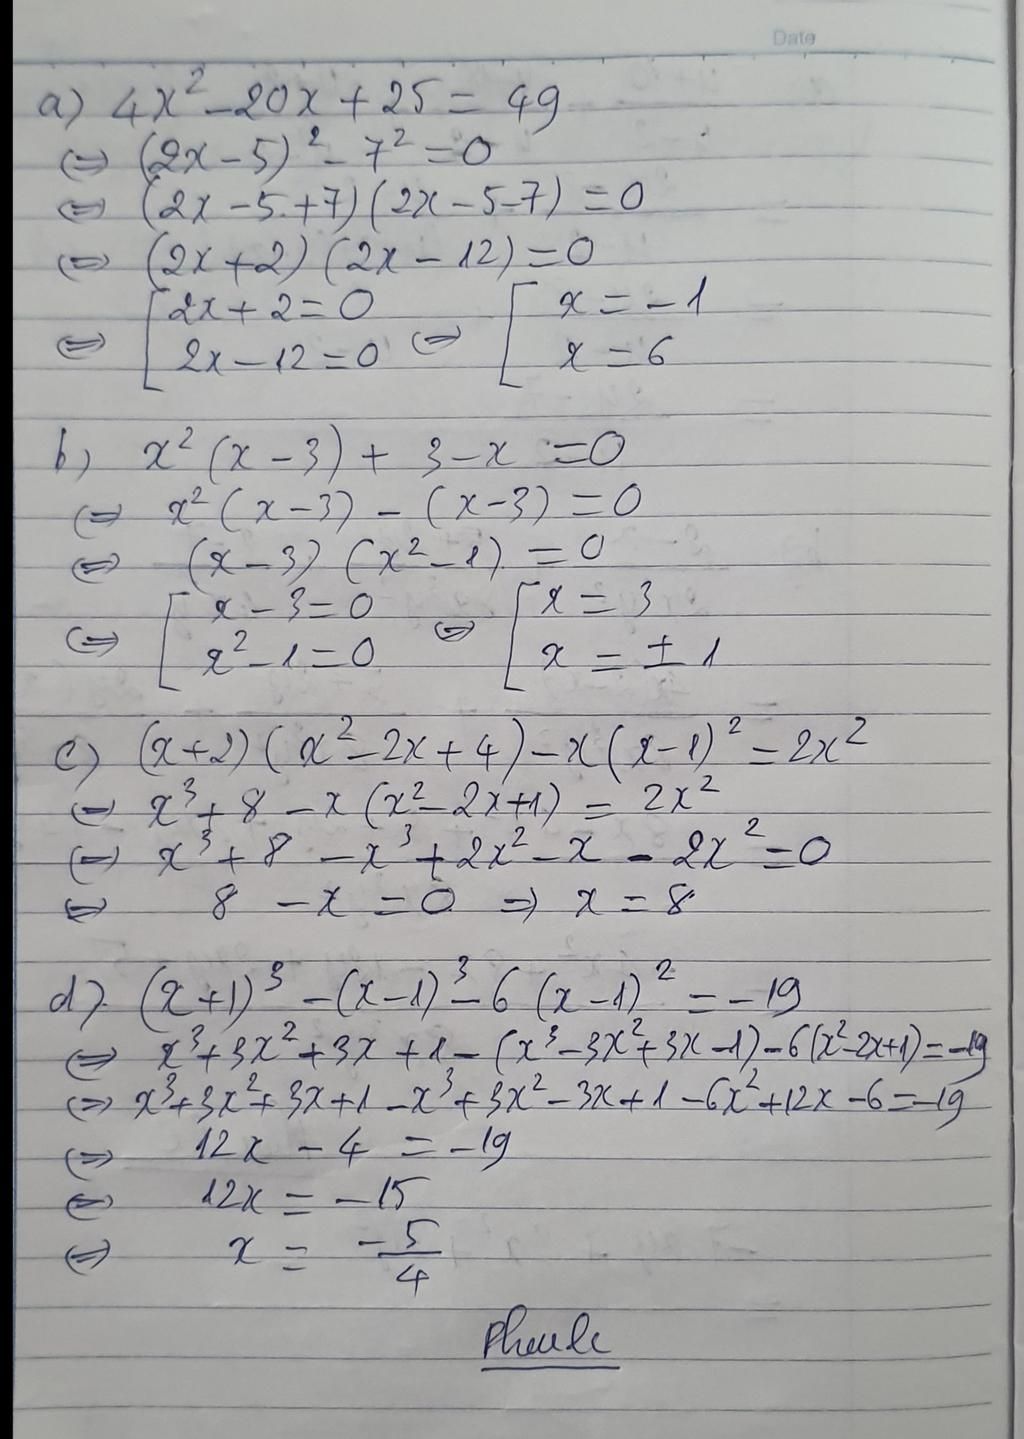 Date
a) 4x² - 20x + 25 = 49
⇔ (2x - 5)² - 7² = 0
⇔ (2x - 5 + 7)(2x - 5 - 7) = 0
⇔ (2x + 2)(2x - 12) = 0
⇔ [ 2x + 2 = 0 ⇔ [ x = -1
2x - 12 = 0 x = 6
b) x²(x - 3) + 3 - x = 0
⇔ x²(x - 3) - (x - 3) = 0
⇔ (x - 3)(x² - 1) = 0
⇔ [ x - 3 = 0 ⇔ [ x = 3
x² - 1 = 0 x = ± 1
c) (x + 2)(x² - 2x + 4) - x(x - 1)² = 2x²
⇔ x³ + 8 - x(x² - 2x + 1) = 2x²
⇔ x³ + 8 - x³ + 2x² - x - 2x² = 0
⇔ 8 - x = 0 ⇒ x = 8
d) (x + 1)³ - (x - 1)³ - 6(x - 1)² = -19
⇔ x³ + 3x² + 3x + 1 - (x³ - 3x² + 3x - 1) - 6(x² - 2x + 1) = -19
⇔ x³ + 3x² + 3x + 1 - x³ + 3x² - 3x + 1 - 6x² + 12x - 6 = -19
⇔ 12x - 4 = -19
⇔ 12x = -15
⇔ x = -5/4